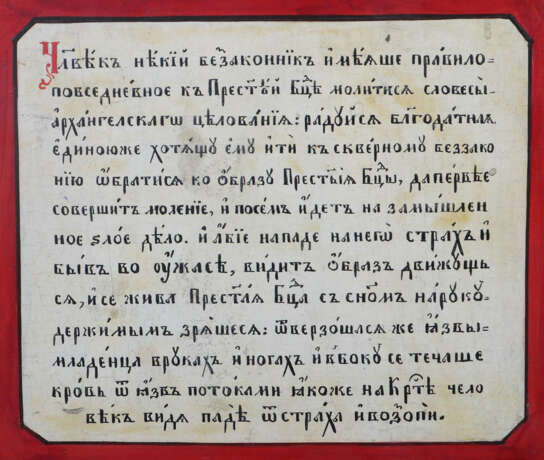 Чл҃вѣкъ нѣкїй беззаконнїкъ имѣяше правило-
повседневное къ Прест҃ѣй Бц҃ѣ молитисѧ словесы-
Архангелскагѡ цѣлованїѧ: радуйсѧ благодатнаѧ
единоюже хотѧщу ему ити къ скверному беззако
нїю ѡбратисѧ ко ѡбразу Прест҃ыѧ Бц҃ы, да первѣе
совершитъ моленїе, и посемъ идетъ на замышлен
ное ѕлое дѣло. и абїе нападе на негѡ страхъ и
бывъ во оужасѣ, видитъ ѡбразъ движущь
сѧ, и се жива Прест҃аѧ Бц҃а съ сн҃омъ на руко-
держимымъ зрѧшесѧ: ѿверзошасѧ же ꙗзвы-
младенца в рукахъ и ногахъ и в боку се течаше
кровь ѿ ꙗзвъ потоками ꙗкоже на Крт҃ѣ чело
вѣкъ видѧ падѣ ѿ страха и возопи.